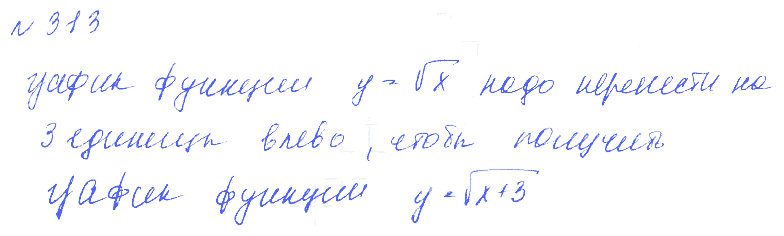 № 313
график функции y = √x надо перенести на
3 единицы влево, чтобы получить
график функции y = √x+3